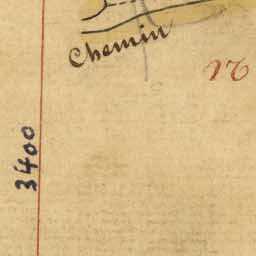 Chemin
12
3400